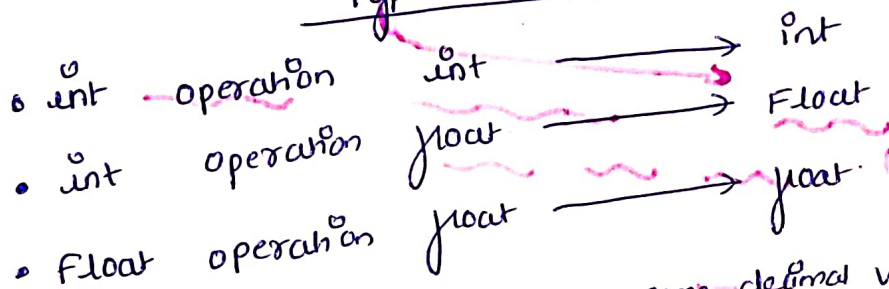 • int operation int → int
• int operation float → Float
• Float operation float → float.
decimal